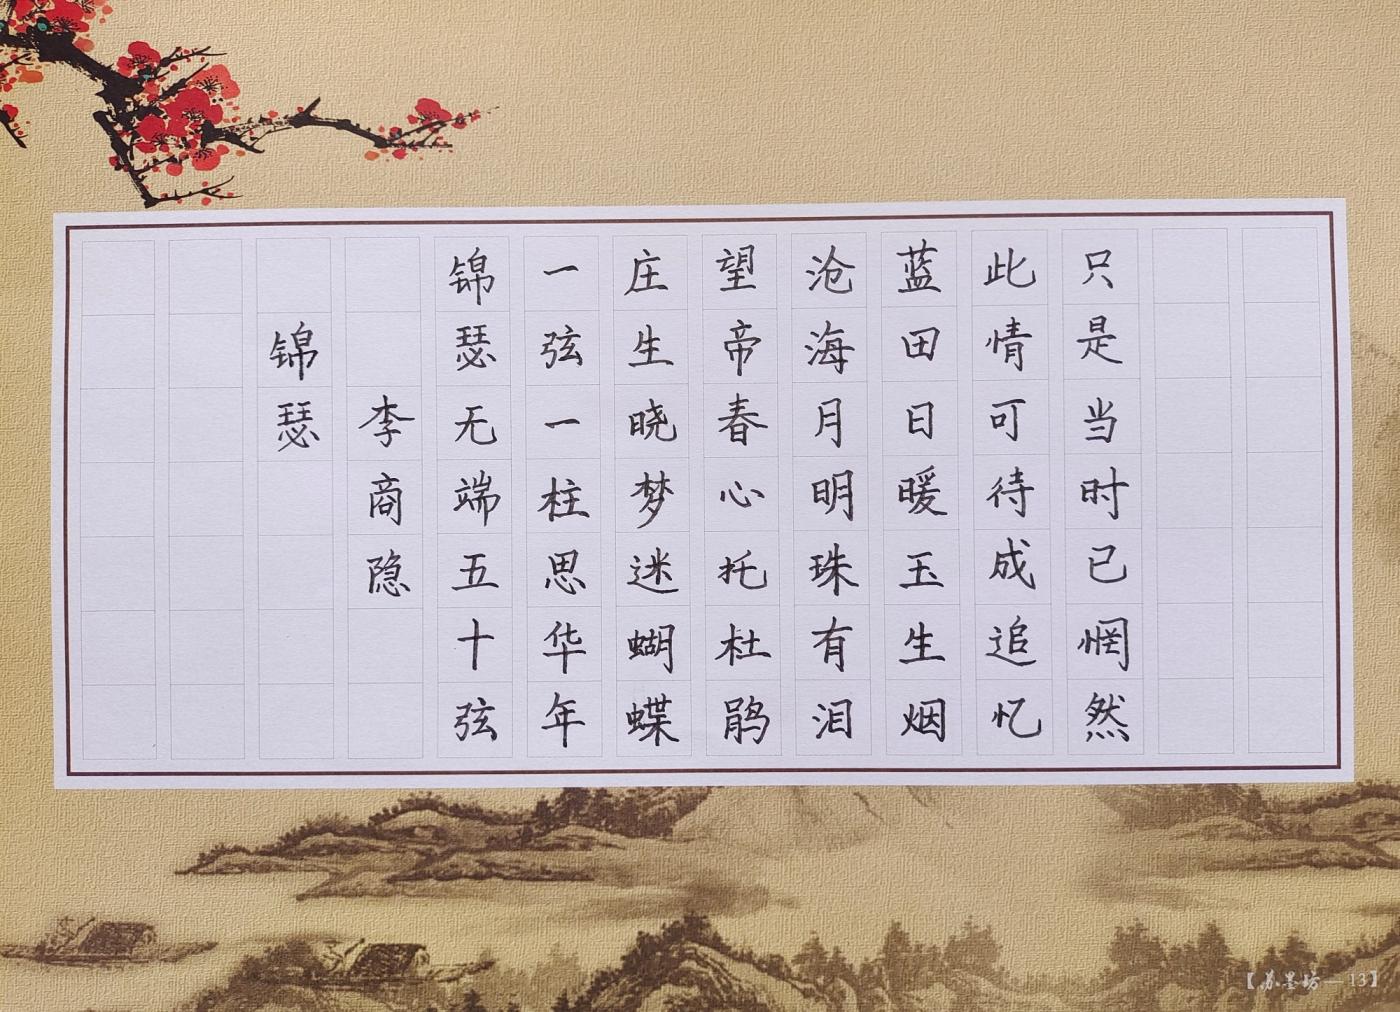 锦瑟
李商隐
锦瑟无端五十弦
一弦一柱思华年
庄生晓梦迷蝴蝶
望帝春心托杜鹃
沧海月明珠有泪
蓝田日暖玉生烟
此情可待成追忆
只是当时已惘然
【苏墨坊—13】